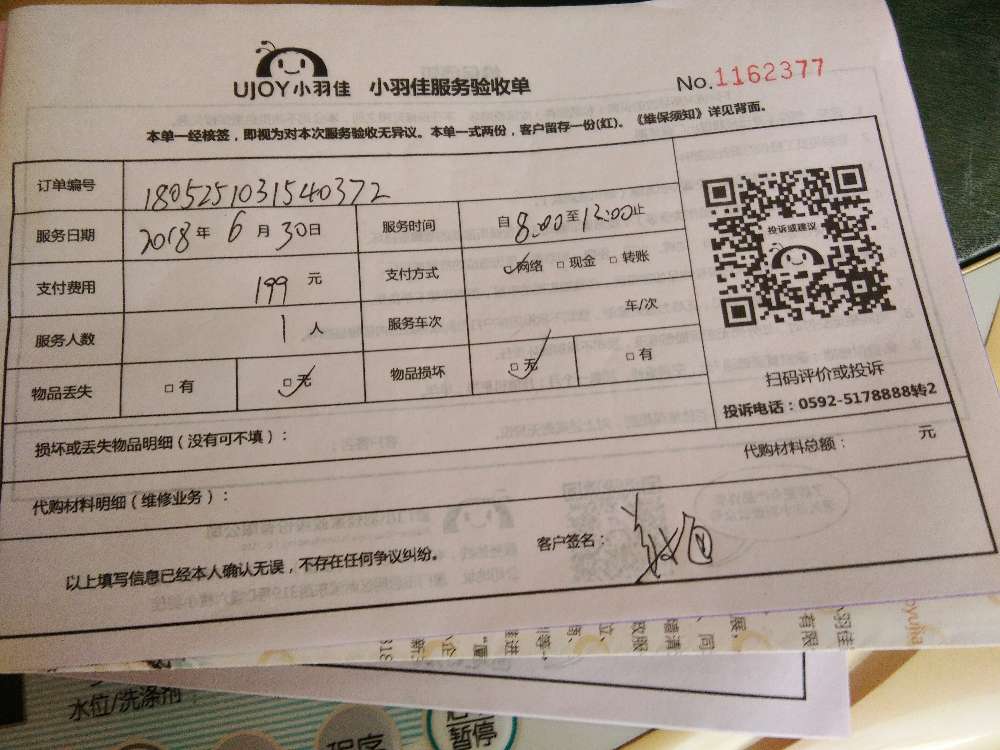 UJOY小羽佳 小羽佳服务验收单
No.1162377
本单一经核签，即视为对本次服务验收无异议。本单一式两份，客户留存一份(红)。《维保须知》详见背面。
订单编号 1805251031540372
服务日期 2018年6月30日 服务时间 自8:00至12:00止
投诉或建议
支付费用 199元 支付方式 ☑网络 □现金 □转账
服务人数 1人 服务车次 车/次
物品丢失 □有 ☑无 物品损坏 ☑无 □有
扫码评价或投诉
投诉电话：0592-5178888转2
损坏或丢失物品明细（没有可不填）：
代购材料明细（维修业务）： 代购材料总额： 元
以上填写信息已经本人确认无误，不存在任何争议纠纷。 客户签名：
水位/洗涤剂
程序
暂停